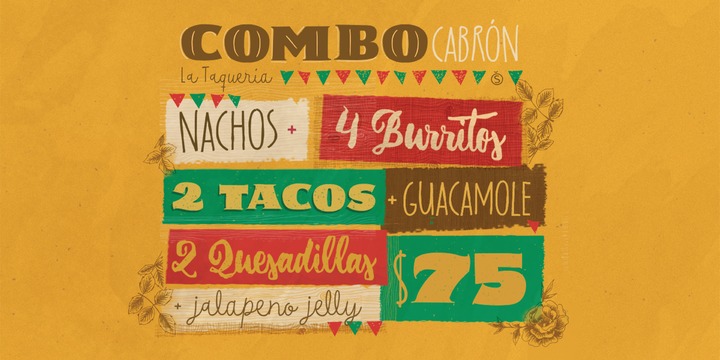 COMBO CABRÓN
La Taqueria
NACHOS + 4 Burritos
2 TACOS + GUACAMOLE
2 Quesadillas
+ jalapeno jelly
$75